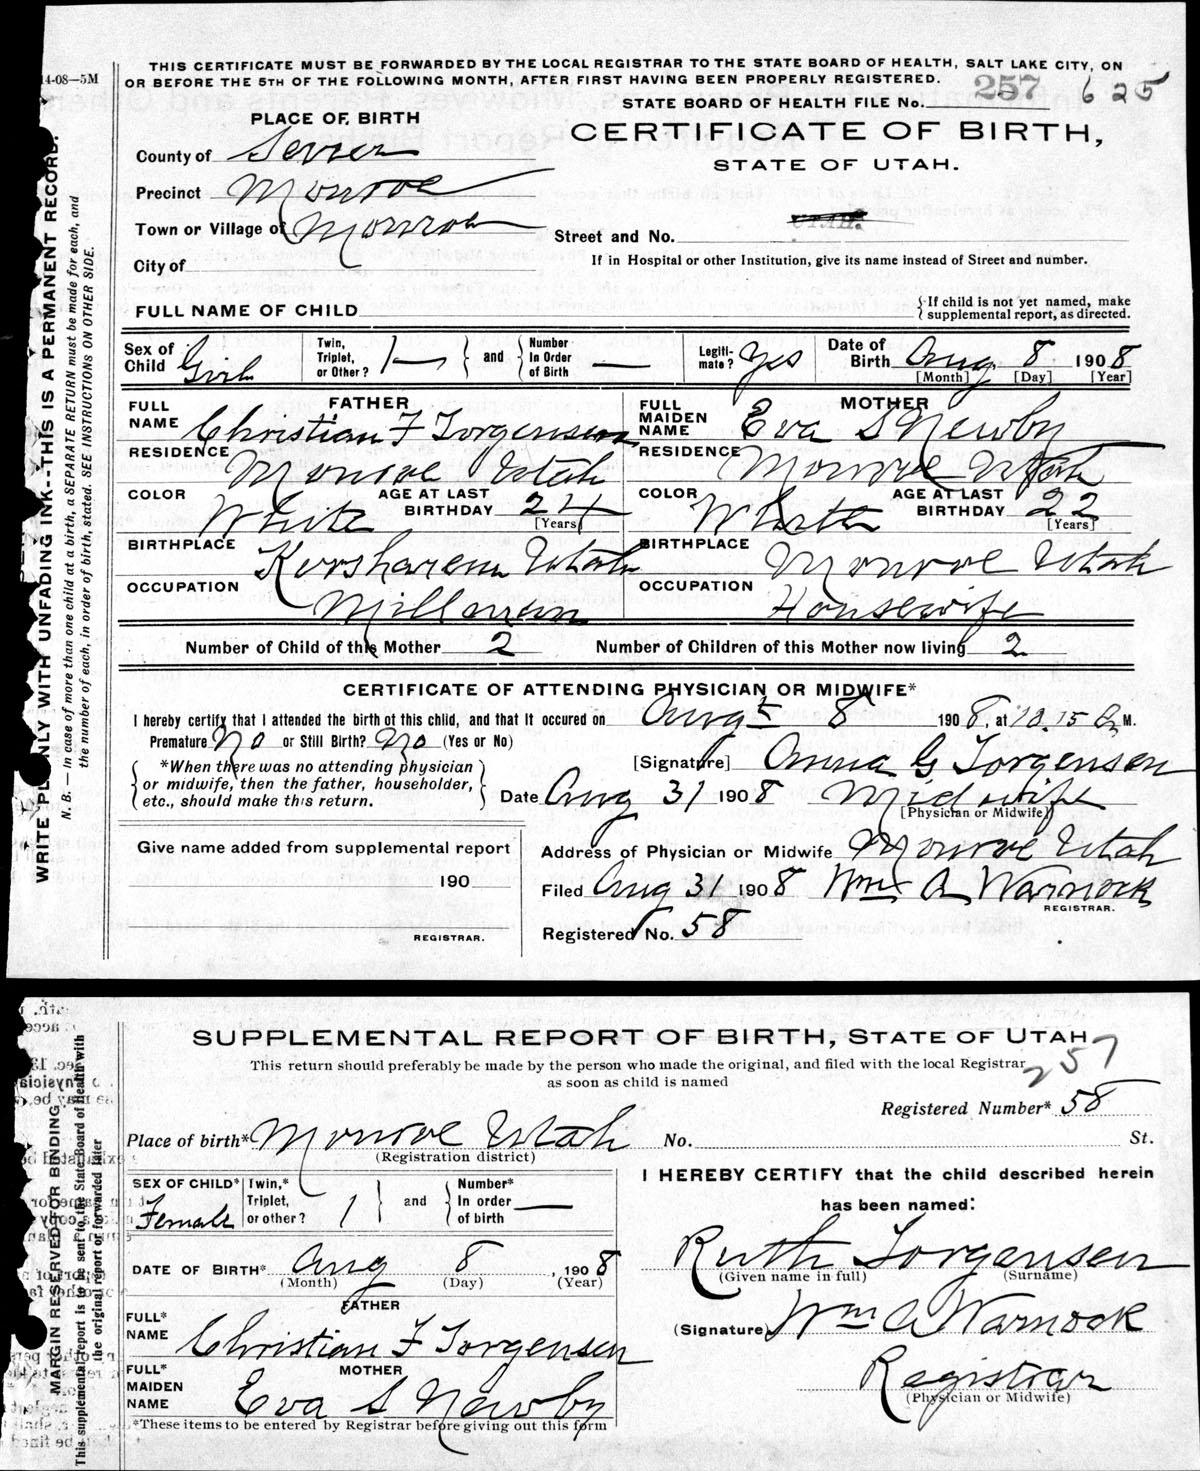 14-08—5M
THIS CERTIFICATE MUST BE FORWARDED BY THE LOCAL REGISTRAR TO THE STATE BOARD OF HEALTH, SALT LAKE CITY, ON
OR BEFORE THE 5TH OF THE FOLLOWING MONTH, AFTER FIRST HAVING BEEN PROPERLY REGISTERED.
STATE BOARD OF HEALTH FILE No. 257 625
PLACE OF BIRTH
CERTIFICATE OF BIRTH,
STATE OF UTAH.
County of Sevier
Precinct Monroe
Town or Village of Monroe
Street and No.
City of
If in Hospital or other Institution, give its name instead of Street and number.
FULL NAME OF CHILD
{If child is not yet named, make
supplemental report, as directed.
Sex of Child Girl
Twin, Triplet, or Other? 1— } and { Number In Order of Birth —
Legiti-mate? Yes
Date of Birth Aug 8 1908
[Month] [Day] [Year]
FATHER
FULL NAME Christian F Jorgensen
RESIDENCE Monroe Utah
COLOR White AGE AT LAST BIRTHDAY 24
[Years]
BIRTHPLACE Utah
OCCUPATION Millman
MOTHER
FULL MAIDEN NAME Eva S Newby
RESIDENCE Monroe Utah
COLOR White AGE AT LAST BIRTHDAY 22
[Years]
BIRTHPLACE Monroe Utah
OCCUPATION Housewife
Number of Child of this Mother 2 Number of Children of this Mother now living 2
CERTIFICATE OF ATTENDING PHYSICIAN OR MIDWIFE*
I hereby certify that I attended the birth of this child, and that it occured on Augst 8 1908, at 10.15 M.
Premature No or Still Birth? No (Yes or No)
*When there was no attending physician
or midwife, then the father, householder,
etc., should make this return.
[Signature] Anna G Jorgensen
Date Aug 31 1908 Midwife
[Physician or Midwife]
Give name added from supplemental report
190
REGISTRAR.
Address of Physician or Midwife Monroe Utah
Filed Aug 31 1908 Wm A Warnock
REGISTRAR.
Registered No. 58
WRITE PLAINLY WITH UNFADING INK--THIS IS A PERMANENT RECORD.
N. B. — In case of more than one child at a birth, a SEPARATE RETURN must be made for each, and
the number of each, in order of birth, stated. SEE INSTRUCTIONS ON OTHER SIDE.
SUPPLEMENTAL REPORT OF BIRTH, STATE OF UTAH
This return should preferably be made by the person who made the original, and filed with the local Registrar
as soon as child is named
257
Registered Number* 58
Place of birth* Monroe Utah No. St.
(Registration district)
SEX OF CHILD* Female
Twin,* Triplet, or other? 1 } and { Number* In order of birth —
DATE OF BIRTH* Aug 8, 1908
(Month) (Day) (Year)
FATHER
FULL* NAME Christian F Jorgensen
MOTHER
FULL* MAIDEN NAME Eva S Newby
*These items to be entered by Registrar before giving out this form
I HEREBY CERTIFY that the child described herein
has been named:
Ruth Jorgensen
(Given name in full) (Surname)
(Signature) Wm A Warnock
Registrar
(Physician or Midwife)
MARGIN RESERVED FOR BINDING
This supplemental report is to be sent to the State Board of Health with
the original report or forwarded later